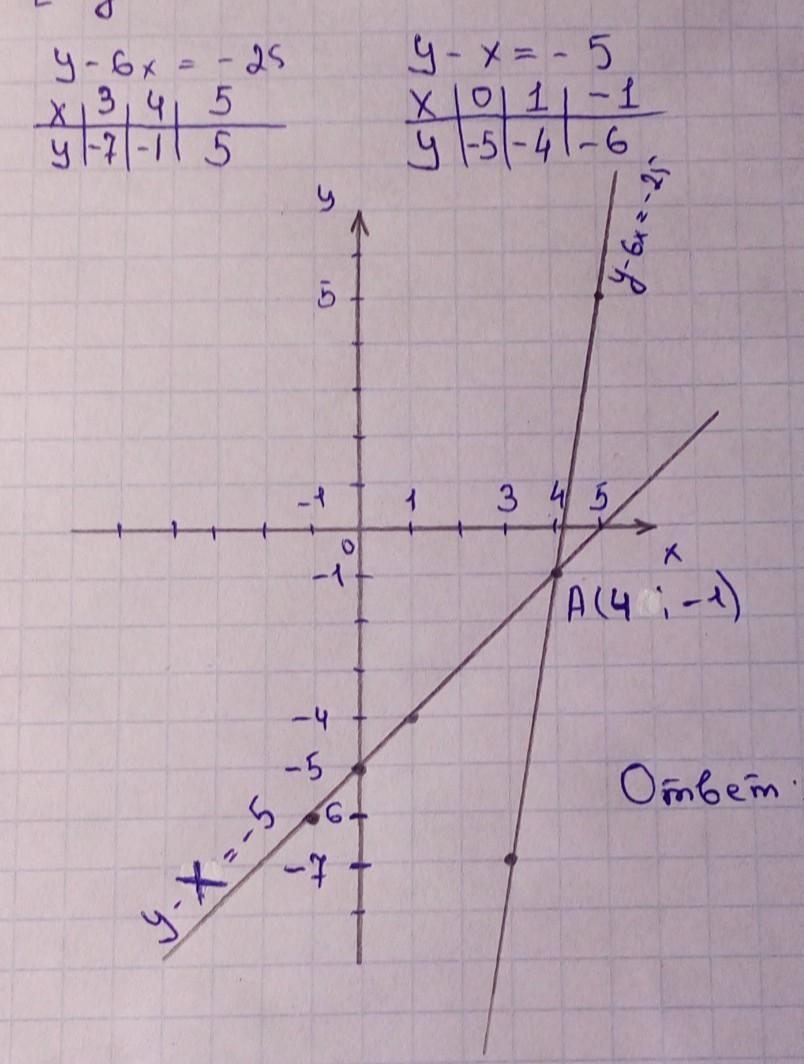 y - 6x = -25
x 3 4 5
y -7 -1 5
y - x = -5
x 0 1 -1
y -5 -4 -6
y
y-6x=-25
5
-1 1 3 4 5
0
x
-1
A(4 ; -1)
-4
-5
6
-7
y-x=-5
Ответ.